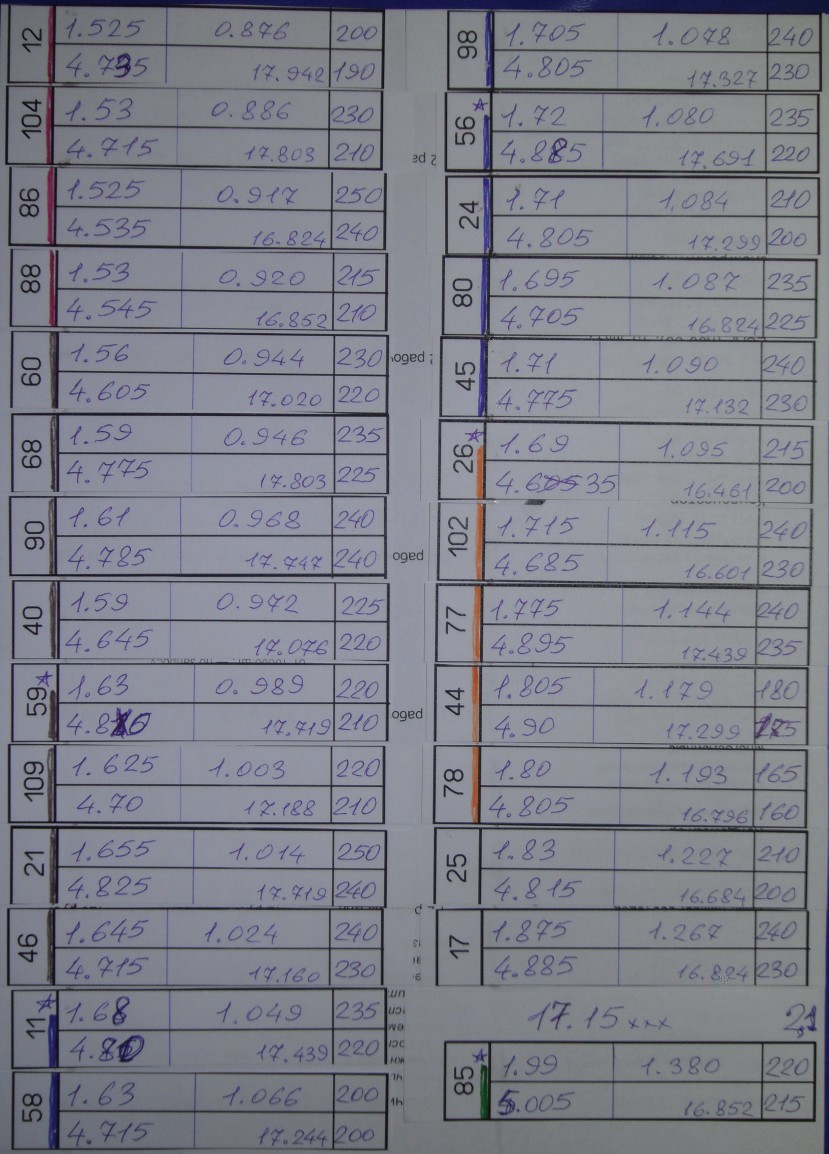 12 1.525 0.876 200
4.735 17.942 190
104 1.53 0.886 230
4.715 17.803 210
86 1.525 0.917 250
4.535 16.824 240
88 1.53 0.920 215
4.545 16.852 210
60 1.56 0.944 230
4.605 17.020 220
68 1.59 0.946 235
4.775 17.803 225
90 1.61 0.968 240
4.785 17.747 240
40 1.59 0.972 225
4.645 17.076 220
59* 1.63 0.989 220
17.719 210
109 1.625 1.003 220
4.70 17.188 210
21 1.655 1.014 250
4.825 17.719 240
46 1.645 1.024 240
4.715 17.160 230
11* 1.68 1.049 235
17.439 220
58 1.63 1.066 200
4.715 17.244 200
98 1.705 1.078 240
4.805 17.327 230
56* 1.72 1.080 235
4.885 17.691 220
24 1.71 1.084 210
4.805 17.299 200
80 1.695 1.087 235
4.705 16.824 225
45 1.71 1.090 240
4.775 17.132 230
26* 1.69 1.095 215
4.605 35 16.461 200
102 1.715 1.115 240
4.685 16.601 230
77 1.775 1.144 240
4.895 17.439 235
44 1.805 1.179 180
4.90 17.299 175
78 1.80 1.193 165
4.805 16.796 160
25 1.83 1.227 210
4.815 16.684 200
17 1.875 1.267 240
4.885 16.824 230
17.15xxx
85* 1.99 1.380 220
5.005 16.852 215